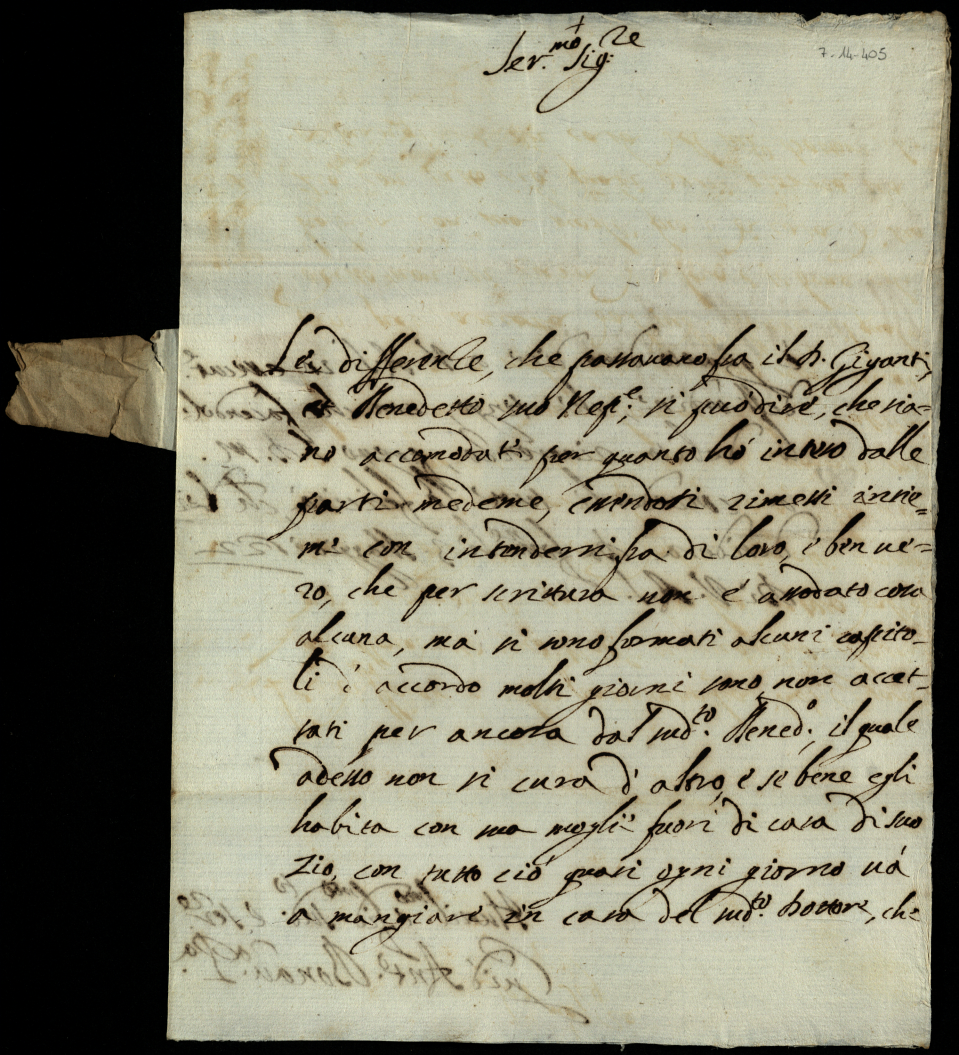 7-14-405
Ser.mo Sig.re
Le differenze, che passavano fra il D. Giganti,
et Benedetto suo Nep.e, si può dire, che sia=
no accomodati per quanto hò inteso dalle
parti medeme, essendosi rimessi insie=
me con intendersi fra di loro, è ben ue=
ro, che per scrittura non è assodato cosa
alcuna, mà si sono formati alcuni capito-
li d'accordo molti giorni sono, non accet-
tati per ancora dal sud.to Bened.o, il quale
adesso non si cura d'altro, e se bene egli
habita con sua moglie fuori di casa di suo
zio, con tutto ciò quasi ogni giorno uà
a mangiare in casa del sud.to Dottore, che